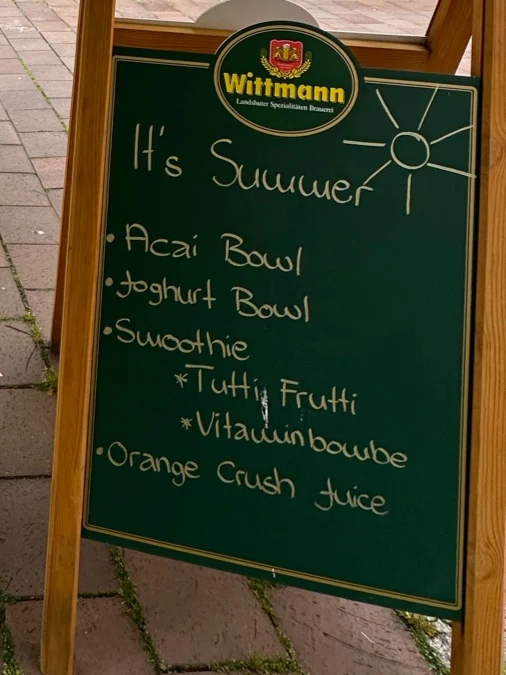 Wittmann
Landshuter Spezialitäten Brauerei
It's Summer
• Acai Bowl
• Joghurt Bowl
• Smoothie
* Tutti Frutti
* Vitaminbombe
• Orange Crush Juice